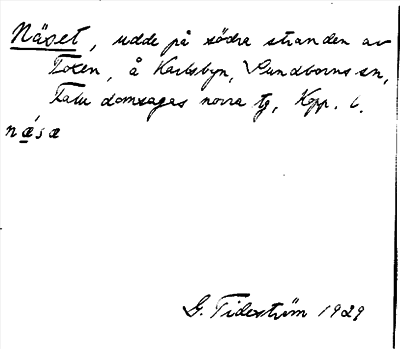 Näset, udde på södra stranden av
Toxen, å Karlsbyn, Sundborns sn,
Falu domsagas norra tg, Kopp. l.
næ̀sæ
G. Tideström 1929